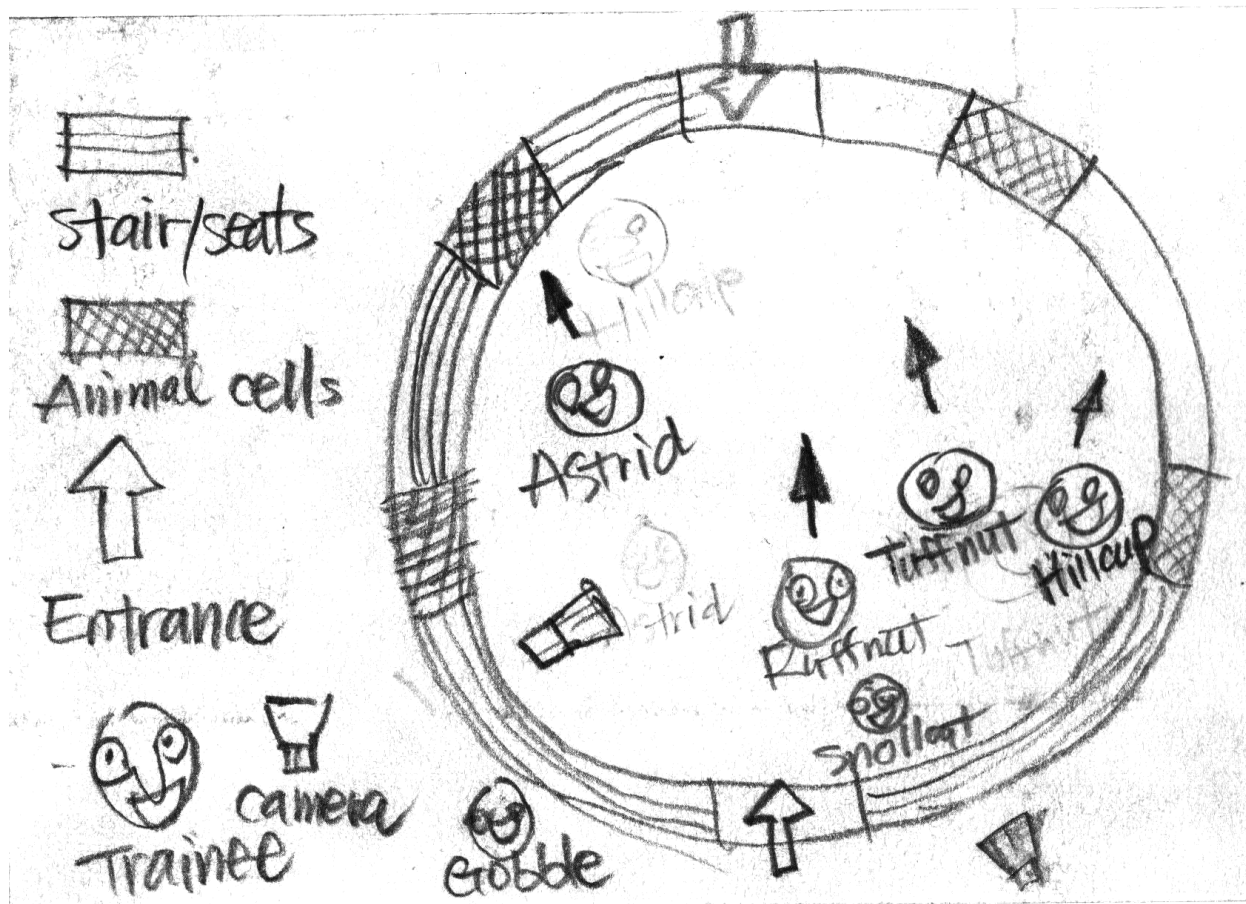 Stair/seats
Animal cells
Entrance
Trainee
camera
Gobble
Hillcup
Astrid
Astrid
Tuffnut
Hillcup
Ruffnut
Tuffnut
Snollout